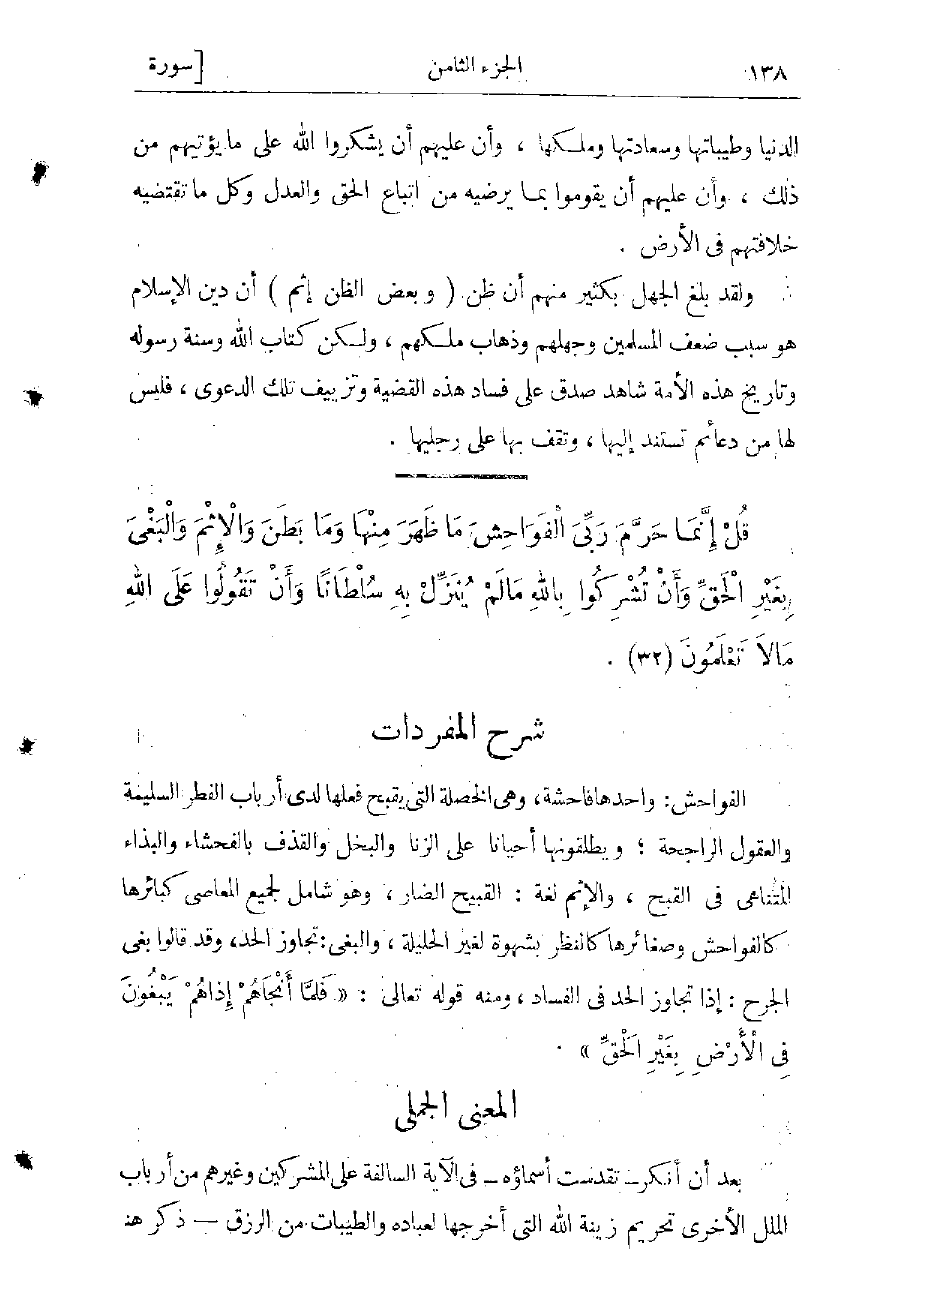 ١٣٨ الجزء الثامن [سورة
الدنيا وطيباتها وسعادتها وملكها ، وأن عليهم أن يشكروا الله على ما يؤتيهم من
ذلك ، وأن عليهم أن يقوموا بما يرضيه من اتباع الحق والعدل وكل ما تقتضيه
خلافتهم فى الأرض .
ولقد بلغ الجهل بكثير منهم أن ظن ( وبعض الظن إثم ) أن دين الإسلام
هو سبب ضعف المسلمين وجهلهم وذهاب ملكهم ، ولكن كتاب الله وسنة رسوله
وتاريخ هذه الأمة شاهد صدق على فساد هذه القضية وتزييف تلك الدعوى ، فليس
لها من دعائم تستند إليها ، وتقف بها على رجليها .
قُلْ إِنَّمَا حَرَّمَ رَبِّىَ الْفَوَاحِشَ مَا ظَهَرَ مِنْهَا وَمَا بَطَنَ وَالْإِثْمَ وَالْبَغْىَ
بِغَيْرِ الْحَقِّ وَأَنْ تُشْرِكُوا بِاللهِ مَالَمْ يُنَزِّلْ بِهِ سُلْطَانًا وَأَنْ تَقُولُوا عَلَى اللهِ
مَالاَ تَعْلَمُونَ (٣٢) .
شرح المفردات
الفواحش: واحدها فاحشة، وهى الخصلة التى يقبح فعلها لدى أرباب الفطر السليمة
والعقول الراجحة ؛ ويطلقونها أحيانا على الزنا والبخل والقذف بالفحشاء والبذاء
المتناهى فى القبح ، والإثم لغة : القبيح الضار ، وهو شامل لجميع المعاصى كبائرها
كالفواحش وصغائرها كالنظر بشهوة لغير الحليلة ، والبغى: تجاوز الحد، وقد قالوا بغى
الجرح : إذا تجاوز الحد فى الفساد ، ومنه قوله تعالى : « فَلَمَّا أَنْجَاهُمْ إِذَاهُمْ يَبْغُونَ
فِى الْأَرْضِ بِغَيْرِ الْحَقِّ » .
المعنى الجملى
بعد أن أنكر ــ تقدست أسماؤه ــ فى الآية السالفة على المشركين وغيرهم من أرباب
الملل الأخرى تحريم زينة الله التى أخرجها لعباده والطيبات من الرزق — ذكر هنا